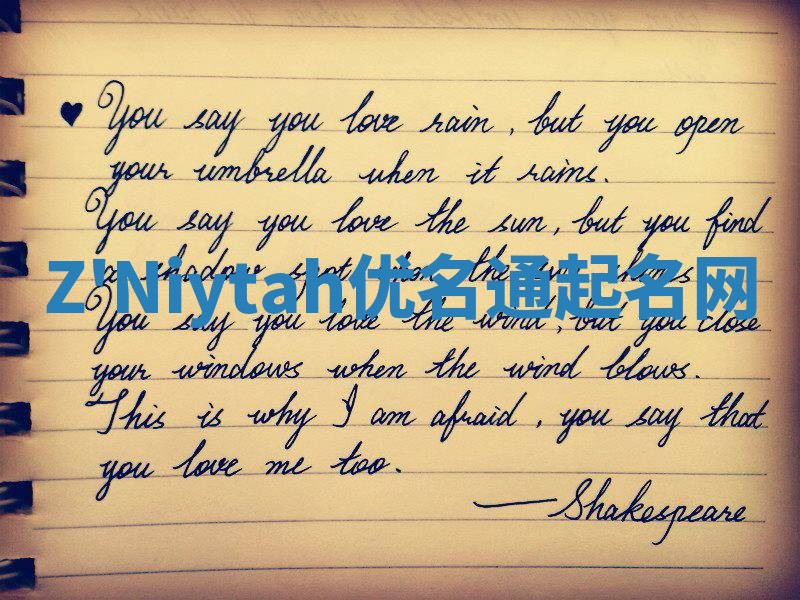 ♥ You say you love rain, but you open
your umbrella when it rains.
You say you love the sun, but you find
a shadow spot when the sun shines
Z'Niytah优名通起名网
You say you love the wind, but you close
your windows when the wind blows.
This is why I am afraid, you say that
you love me too.
—Shakespeare